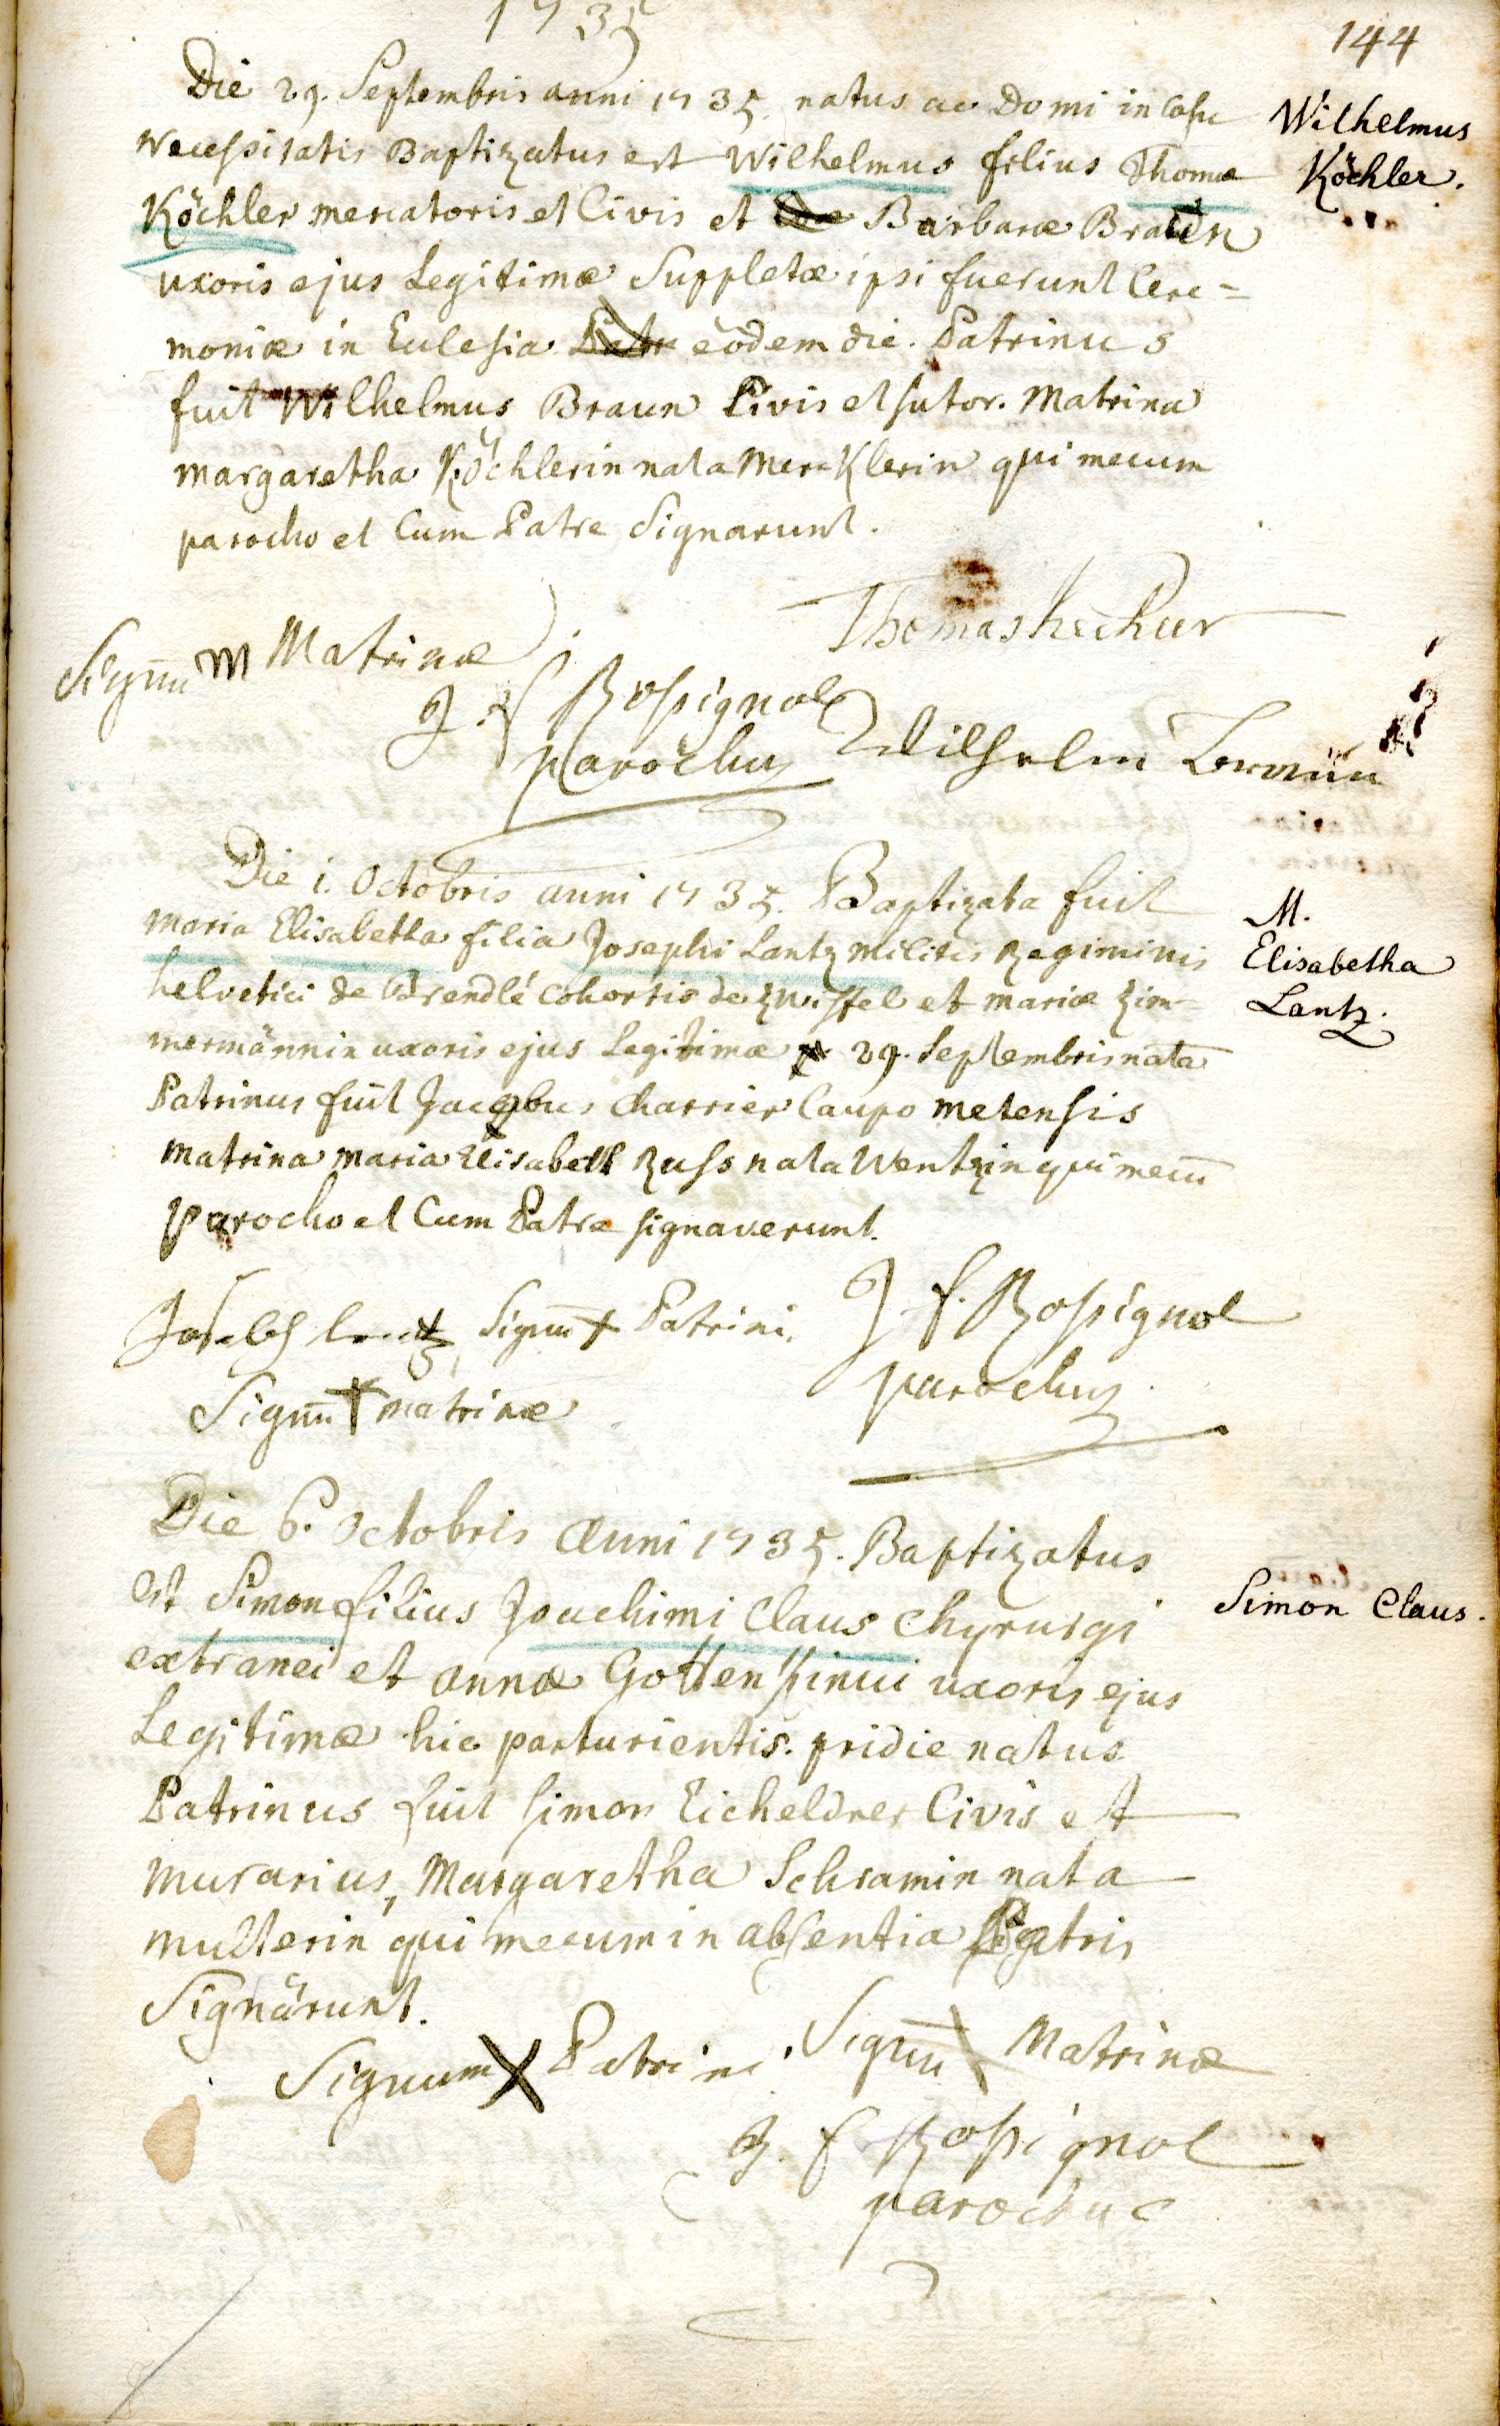 1735
144
Die 29. Septembris anni 1735. natus ac Domi in Casu
Necessitatis Baptizatus est Wilhelmus filius Thomæ
Köchler mercatoris et Civis et Barbaræ Braun
uxoris ejus Legitimæ Suppletæ ipsi fuerunt Cere=
moniæ in Eclesia eodem die. Patrinus
fuit Wilhelmus Braun Civis et sutor. Matrina
Margaretha Köchlerin nata Mercklerin qui mecum
parocho et Cum Patre Signarunt.
Wilhelmus
Köchler.
Thomas
Signū M Matrinæ
J. f Rossignol
parochus Wilhelm
Die i. Octobris anni 1735. Baptizata fuit
Maria Elisabetha filia Josephi Lantz militis Regiminis
helvetici de Brendlé Cohortis de et mariæ Zim-
mermännin uxoris ejus Legitimæ 29. Septembris nata
Patrinus fuit Jacobus Charrier Caupo metensis
Matrina maria Elisabeth Russ nata Wentzin qui mecū
parocho et Cum Patre signaverunt.
M.
Elisabetha
Lantz.
Joseph lantz Signū + Patrini. J. f. Rossignol
Signū + matrinæ parochus
Die 6. Octobris Anni 1735. Baptizatus
est Simon filius Joachimi Claus Chyrurgi
extranei et annæ uxoris ejus
Legitimæ hic parturientis. pridie natus
Patrinus fuit Simon Eicheldrer Civis et
murarius, Margaretha Schramin nata
multerin qui mecum in absentia Patris
Signarunt.
Simon Claus.
Signum X Patrini. Signū X Matrinæ
J. f Rossignol
parochus